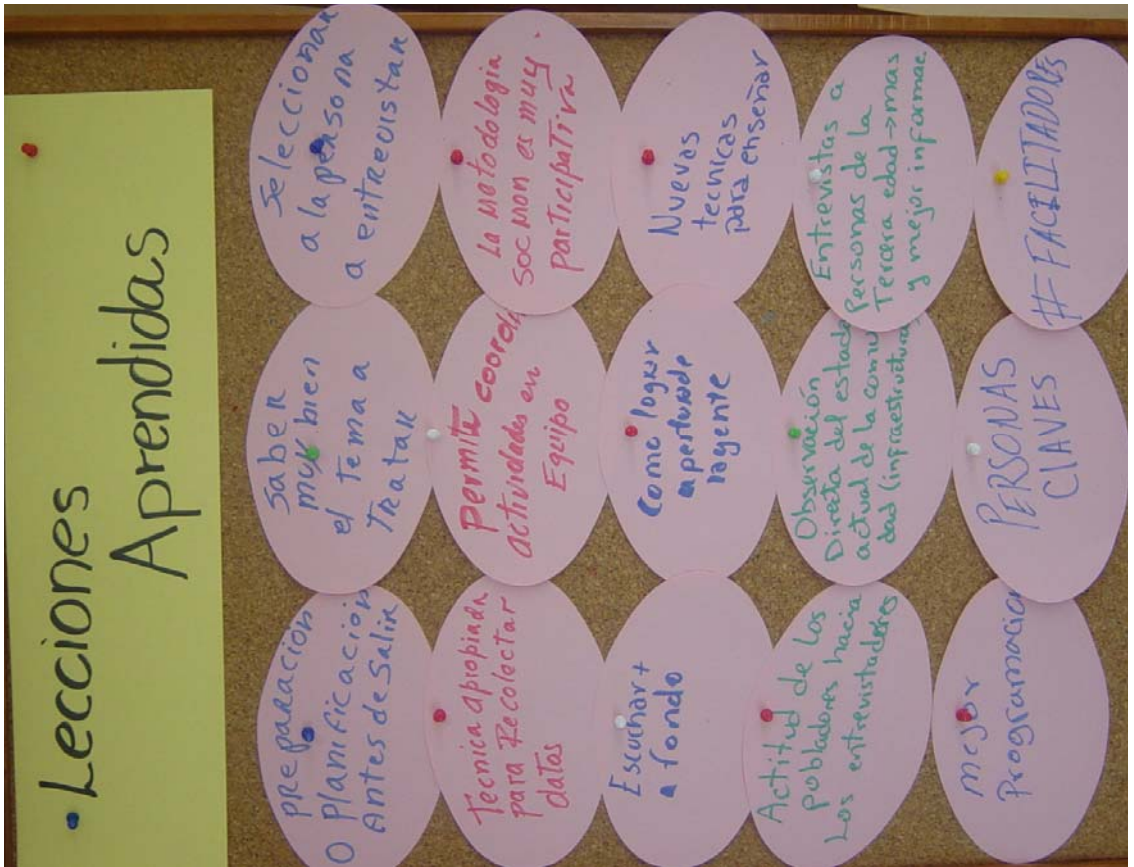 Lecciones
Aprendidas
preparacion
O planificacion
Antes de Salir
Saber
muy bien
el Tema a
Tratar
Seleccionar
a la persona
a entrevistar
Tecnica apropiada
para Recolectar
datos
permite coordi
actividades en
Equipo
La Metodologia
SOCMON es muy
participativa
Escuchar +
a fondo
Como lograr
apertura de
la gente
Nuevas
tecnicas
para enseñar
Actitud de los
pobladores hacia
Los entrevistadores
Observación
Directa del estado
actual de la comu
dad (infraestructura)
Entrevistas a
Personas de la
Tercera edad → mas
y mejor informac.
mejor
Programacion
PERSONAS
CLAVES
# FACILITADORES